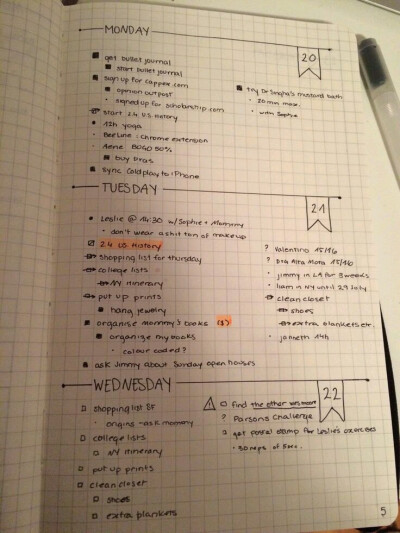 MONDAY
20
get bullet journal
start bullet journal
sign up for cappex.com
opinion outpost
signed up for scholarship.com
start 2.4 U.S. History
12h yoga
BeeLine: Chrome extension
Aerie BOGO 50%
buy bras
sync Coldplay to iPhone
try Dr Singha's mustard bath
20 min max.
with Sophie
TUESDAY
21
Leslie @ 14:30 w/Sophie + Mommy
don't wear a shit ton of makeup
2.4 US History
shopping list for thursday
college lists
NY itinerary
put up prints
hang jewelry
organise mommy's books (3)
organize my books
colour coded?
ask Jimmy about Sunday open houses
? Valentino 15/16
? Dra Alta Moda 15/16
jimmy in LA for 3 weeks
liam in NY until 29 July
clean closet
shoes
extra blankets etc.
janneth 14h
WEDNESDAY
22
shopping list SF
origins - ask mommy
college lists
NY itinerary
put up prints
clean closet
shoes
extra blankets
! find the other
? Parsons Challenge
get postal stamp for Leslie's exercises
30 reps of 5sec.
5